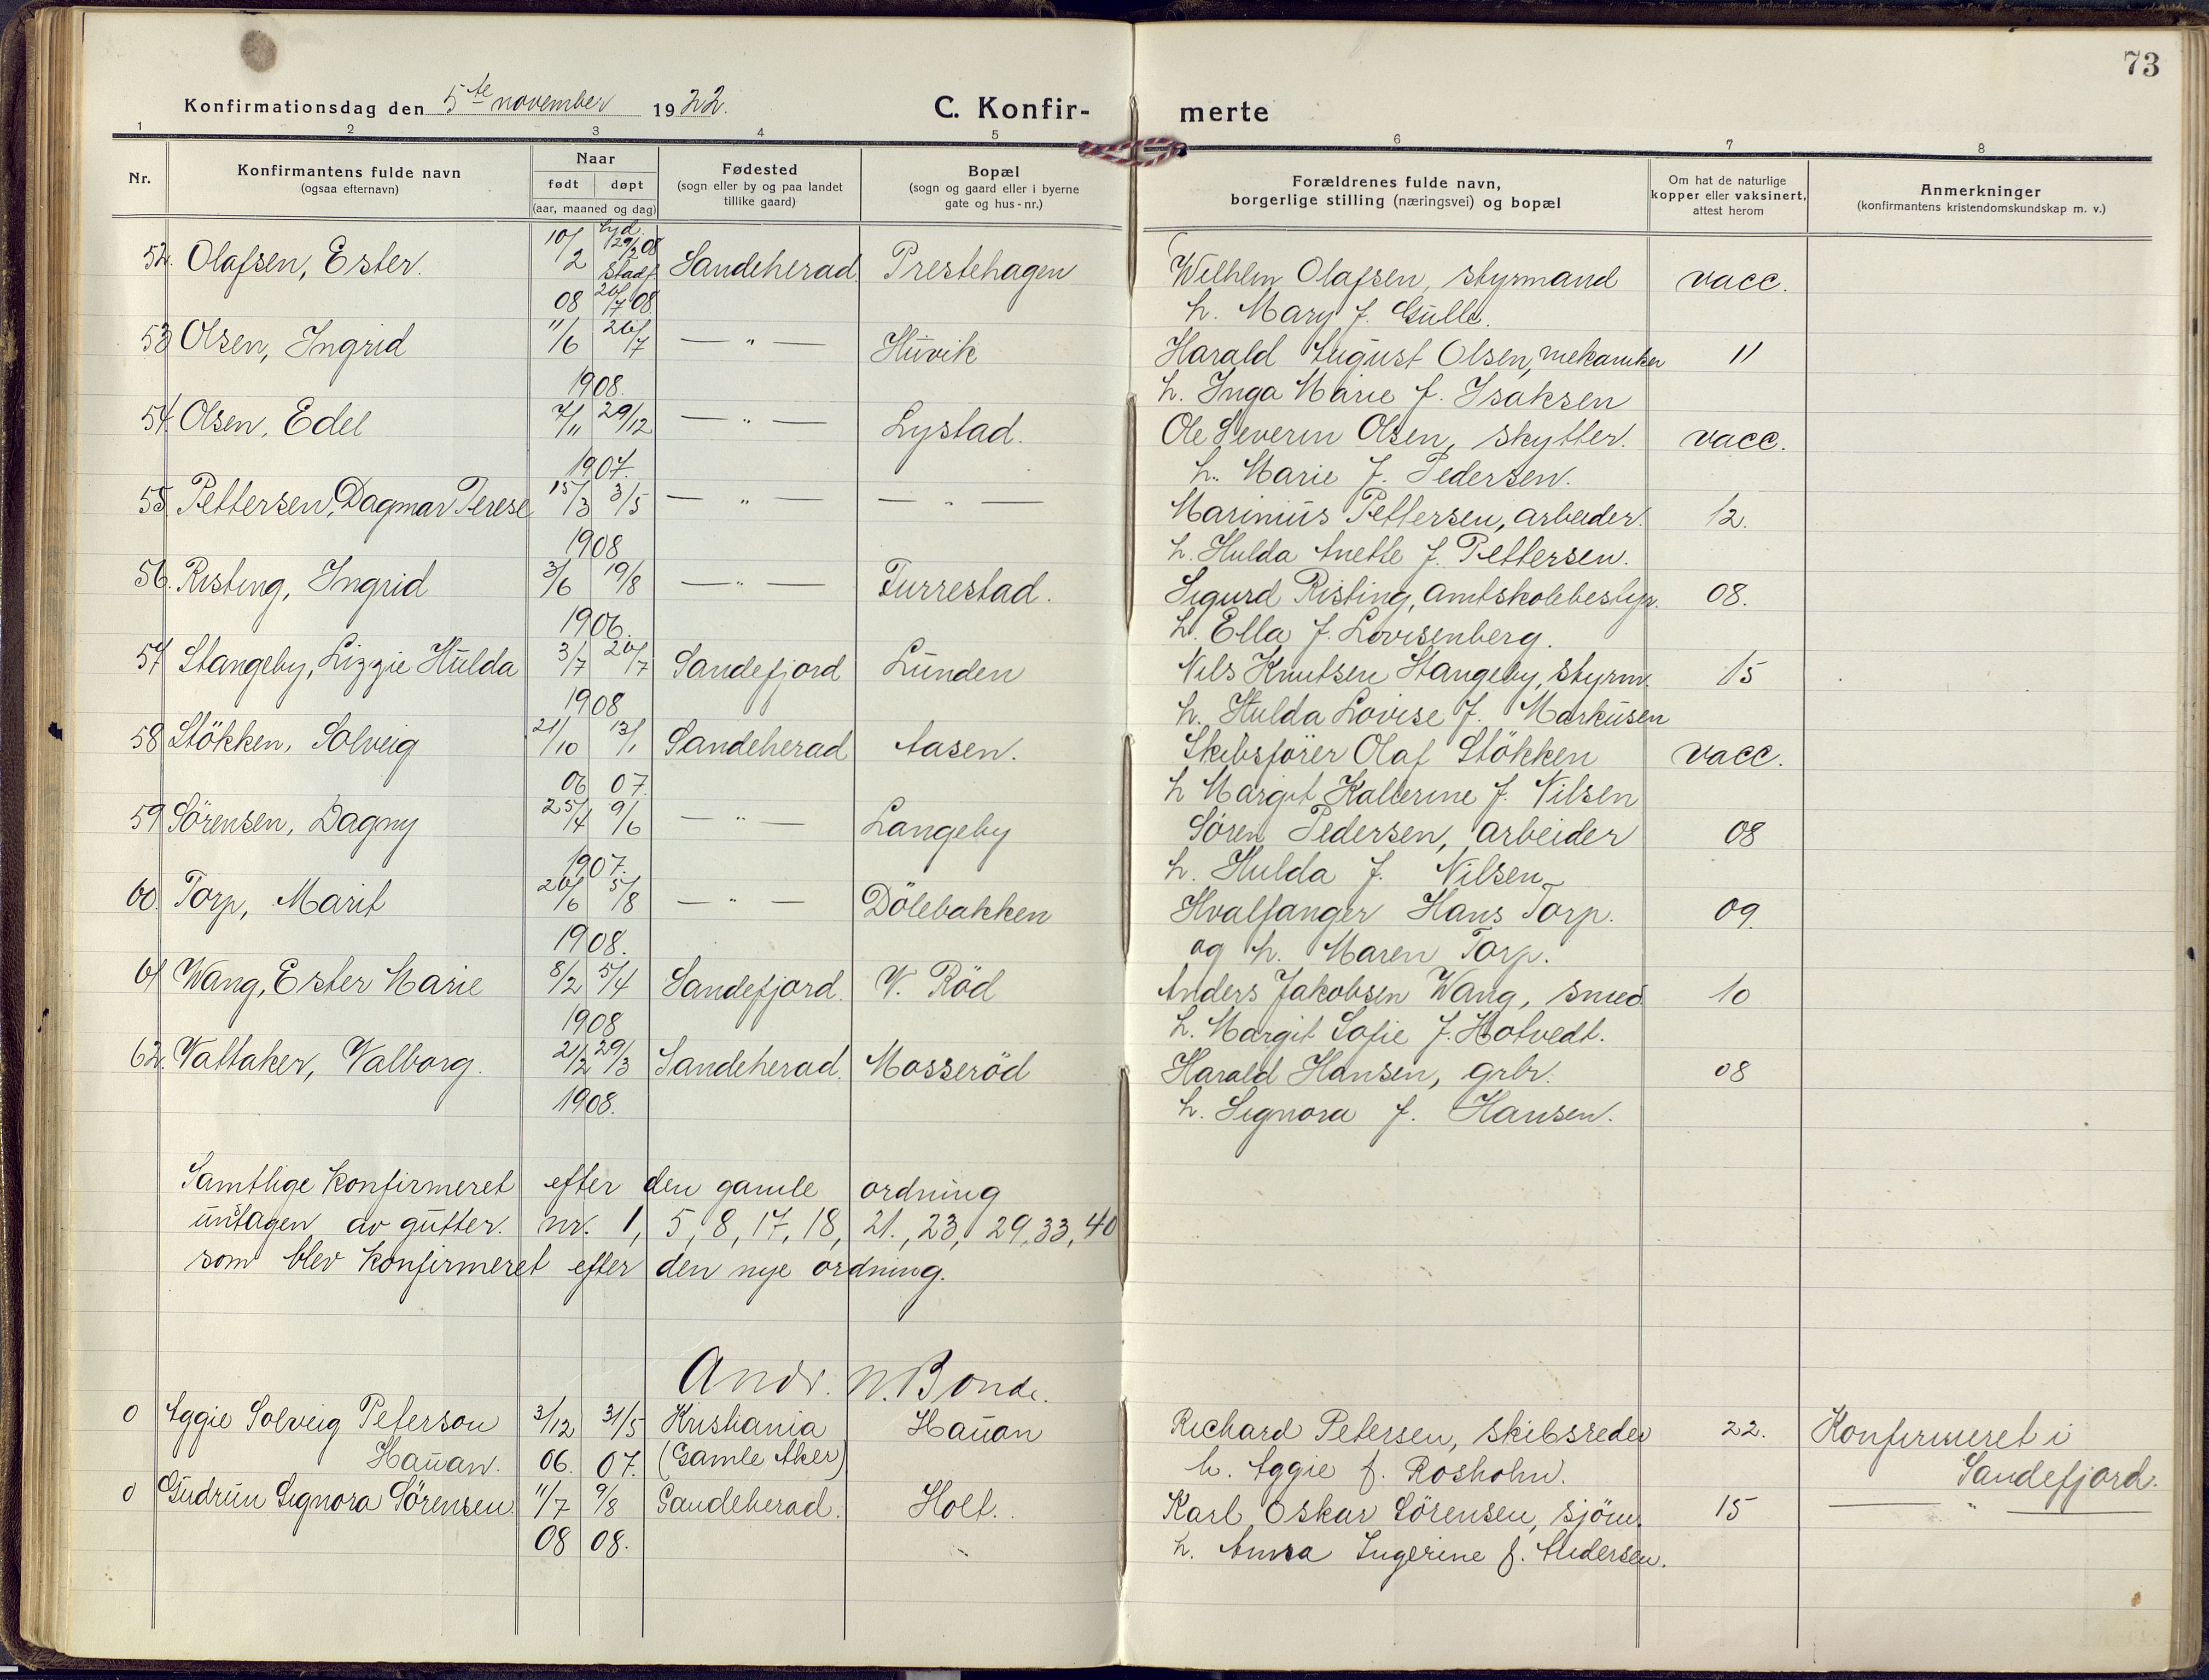 73
Konfirmationsdag den 5te november 1922.
C. Konfir-merte
1 2 3 4 5 6 7 8
Nr.
Konfirmantens fulde navn
(ogsaa efternavn)
Naar
født døpt
(aar, maaned og dag)
Fødested
(sogn eller by og paa landet
tillike gaard)
Bopæl
(sogn og gaard eller i byerne
gate og hus-nr.)
Forældrenes fulde navn,
borgerlige stilling (næringsvei) og bopæl
Om hat de naturlige
kopper eller vaksinert,
attest herom
Anmerkninger
(konfirmantens kristendomskundskap m. v.)
52. Olafsen, Ester. 10/2 08 29/2 08 stadf. 26/7 08. Sandeherad Prestehagen Wilhlm Olafsen, styrmand vacc.
h. Mary f. Gulli.
53 Olsen, Ingrid 11/6 26/7 — " — Huvik Harald August Olsen, mekaniker 11
1908. h. Inga Marie f. Isaksen
54. Olsen, Edel 7/11 29/12 — " — Lystad. Ole Severin Olsen, skytter. vacc.
1907. h. Marie f. Pedersen.
55. Pettersen, Dagmar Terese 15/3 3/5 — " — — " — Marinius Pettersen, arbeider. 12.
1908 h. Hulda Anette f. Pettersen.
56. Risting, Ingrid 3/6 19/8 — " — Furrestad. Sigurd Risting, amtskolebestyr. 08.
1906. h. Ella f. Lovisenberg.
57 Stangeby, Lizzie Hulda 3/7 26/7 Sandefjord Lunden Nils Knutsen Stangeby, styrm. 15
1908 h. Hulda Lovise f. Markusen
58 Stökken, Solveig 21/10 13/1 Sandeherad Aasen. Skibsförer Olaf Stökken vacc.
06 07. h Margit Katterine f. Nilsen
59 Sörensen, Dagny 25/4 9/6 — " — Langeby Søren Pedersen, arbeider 08
1907. h. Hulda f. Nilsen
60. Torp, Marit 26/6 5/8 — " — Dölebakken Hvalfanger Hans Torp. 09.
1908. og h. Maren Torp.
61 Wang, Ester Marie 8/2 5/4 Sandefjord. V. Röd Anders Jakobsen Wang, smed. 10
1908 h. Margit Sofie f. Hotvedt.
62. Vattaker, Valborg. 21/2 29/3 Sandeherad. Mosseröd Harald Hansen, grbr. 08
1908. h. Signora f. Hansen.
Samtlige konfirmeret efter den gamle ordning
untagen av gutter. nr. 1, 5, 8, 17, 18, 21., 23, 29, 33, 40
som blev konfirmeret efter den nye ordning.
Andr. N. Bonde.
0 Aggie Solveig Peterson 3/12 31/5 Kristiania Hauan Richard Petersen, skibsreder 22. Konfirmeret i
Hauan. 06. 07. (Gamle Aker) h. Aggie f. Rosholm. Sandefjord.
0 Gudrun Signora Sörensen. 11/7 9/8 Sandeherad. Holt. Karl Oskar Sörensen, sjöm. 15 — " —
08 08. h. Anna Ingerine f. Andersen.